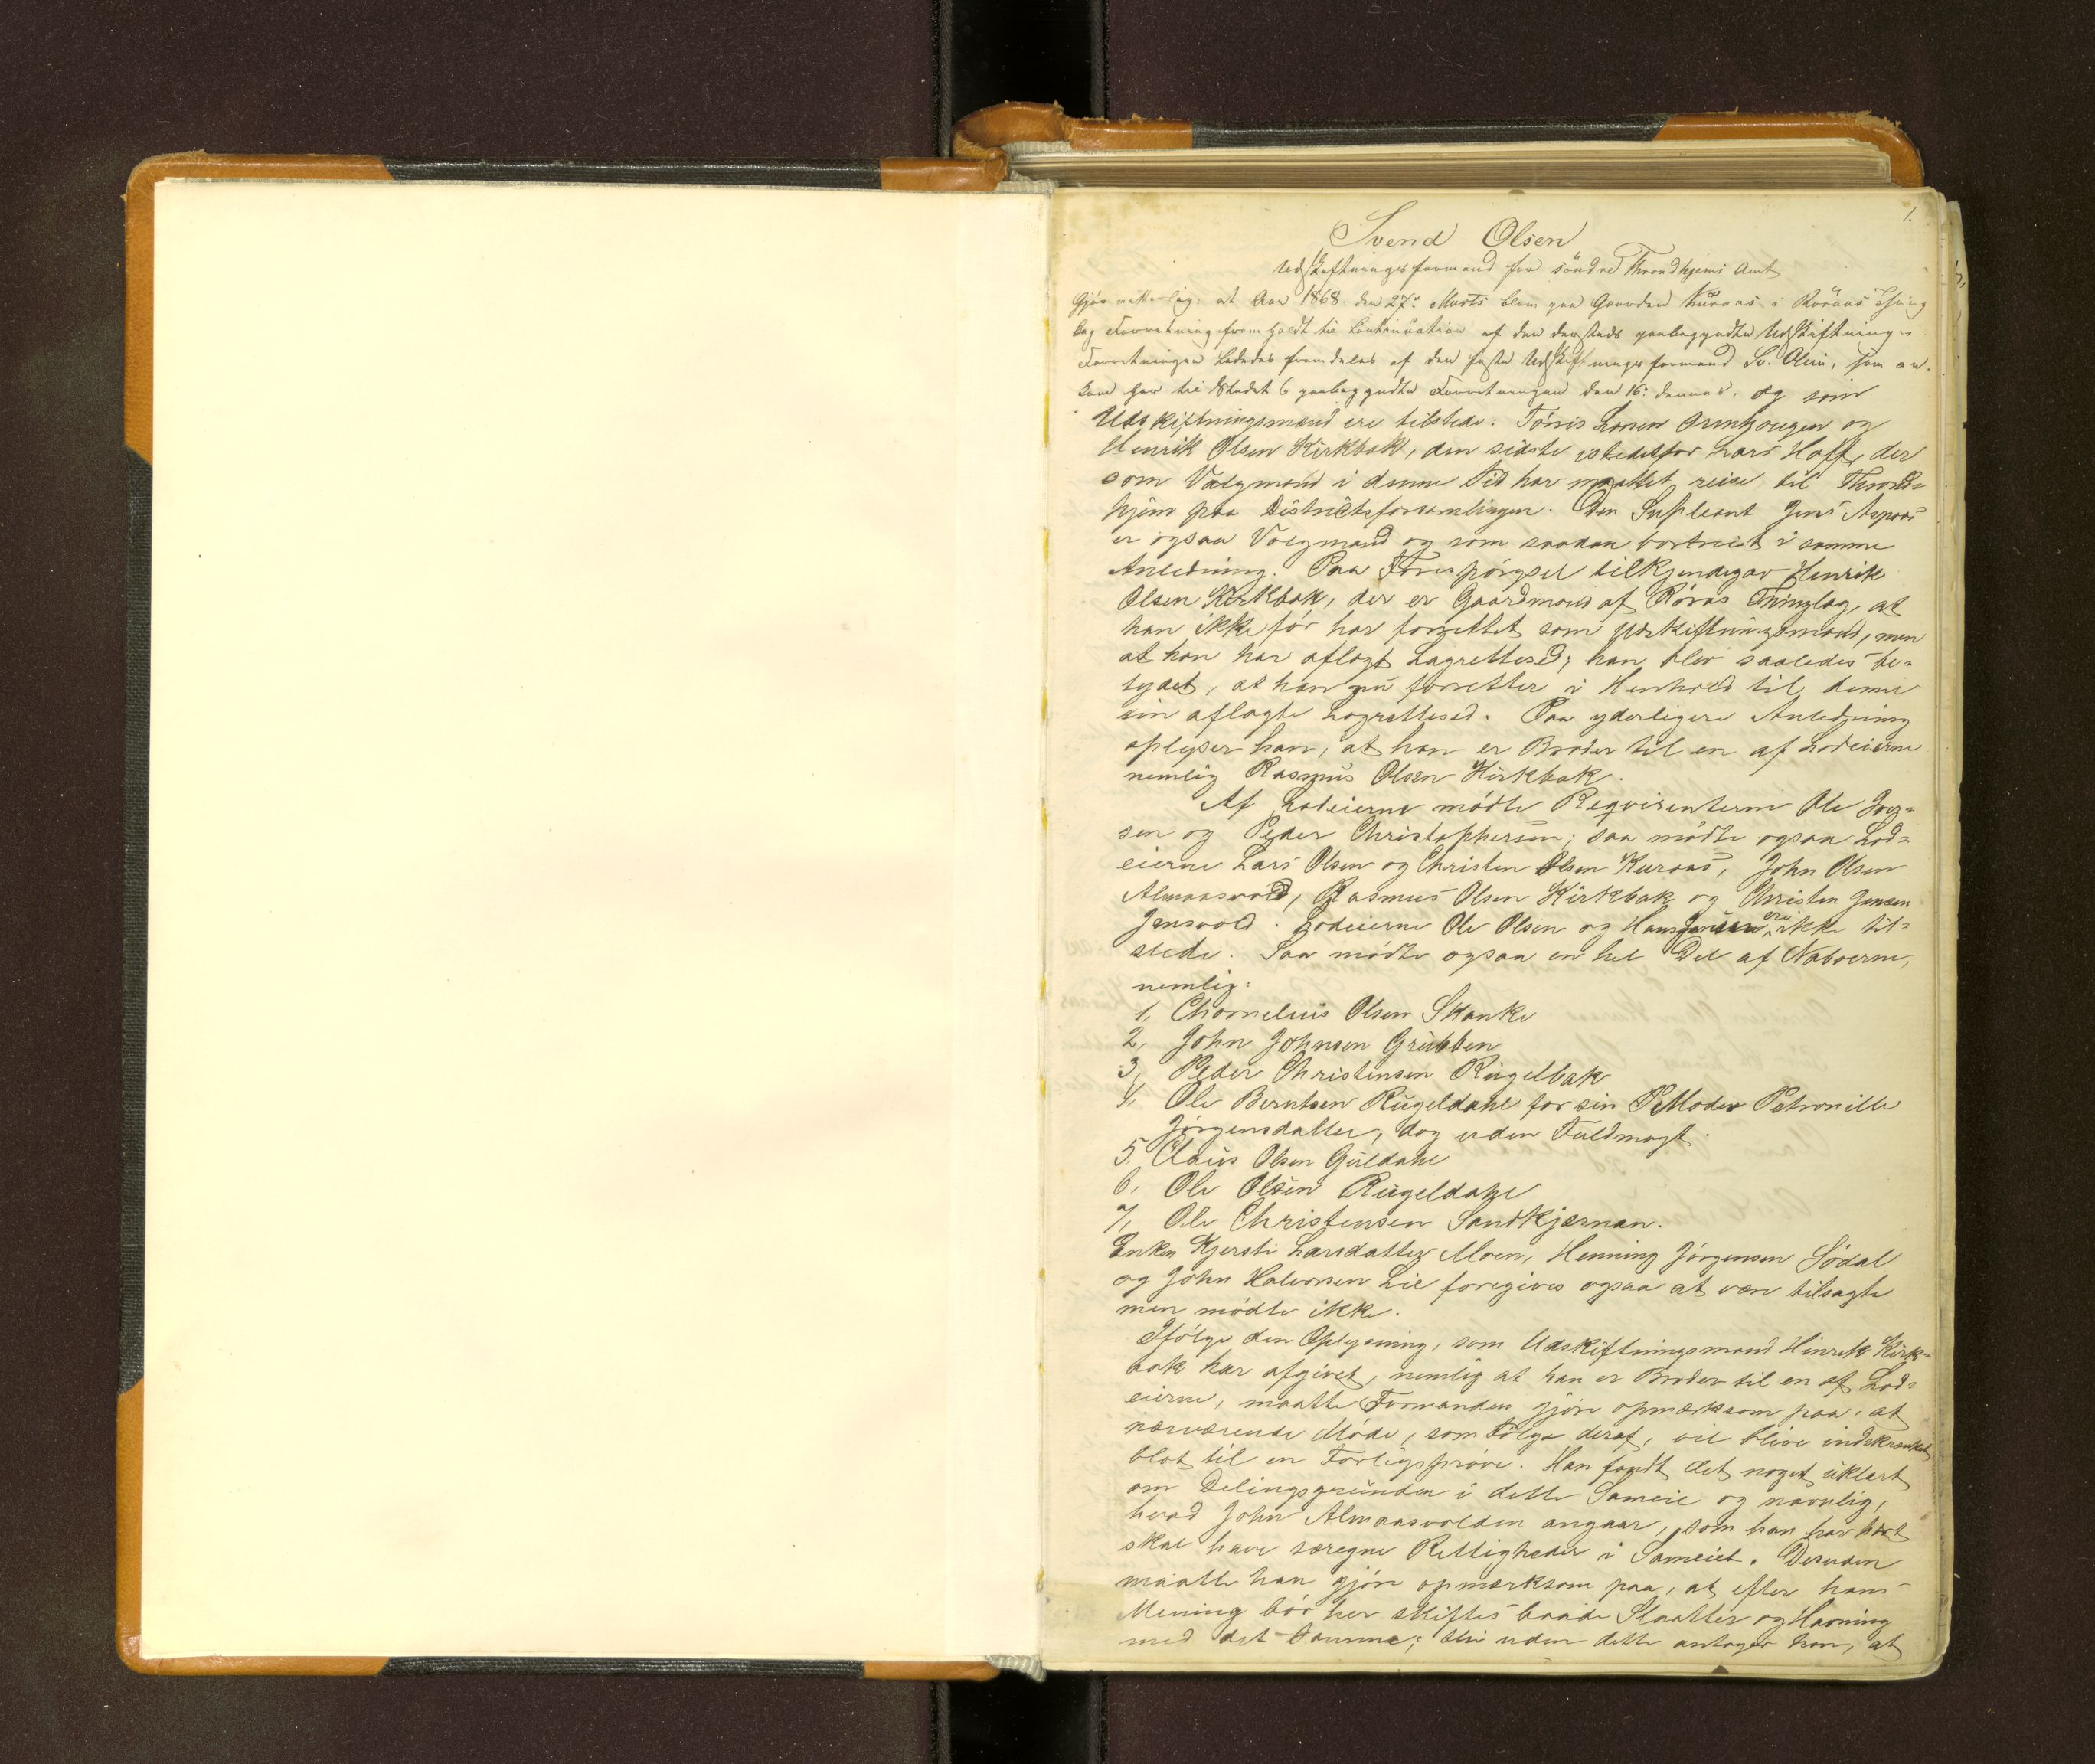 1.
Svend Olsen
Udskiftningsformand for søndre Throndhjems Amt
Gjør vitterlig: at Aar 1868 den 27de Marts blev paa Gaarden Kuraas i Røraas Thing
lag Forretning frem holdt til Continuation af den dersteds paabegyndte Udskiftnings
Forretningen lededes fremdeles af den faste Udskiftningsformand Sv. Olsen, som an¬
kom her til Stedet & paabegyndte Forretningen den 16de dennes, og som
Udskiftningsmænd ere tilstede: Tørris Larsen Arnthougen og
Henrik Olsen Kirkbak, den sidste istedetfor Lars Hoff, der
som Valgmand i denne Tid har maattet reise til Thrond¬
hjem paa Districtsforsamlingen. Den Supleant Jens Aspaas
er ogsaa Valgmand og som saadan bortreist i samme
Anledning. Paa Forespørgsel tilkjendegav Henrik
Olsen Kirkbak, der er Gaardmand af Røraas Thinglag, at
han ikke før har forrettet som Udskiftningsmand, men
at han har aflagt Lagrettesed; han blev saaledes be¬
tydet, at han nu forretter i Henhold til denne
sin aflagte Lagrettesed. Paa yderligere Anledning
oplyser han, at han er Broder til en af Lodeierne
nemlig Rasmus Olsen Kirkbak.
Af Lodeierne mødte Reqvirenterne Ole Iver¬
sen og Peder Christophersen; saa mødte ogsaa Lod¬
eierne Lars Olsen og Christen Olsen Kuraas, John Olsen
Almaasvold, Rasmus Olsen Kirkbak og Christen Jensen
Jensvold. Lodeierne Ole Olsen og Hans Jensen ere ikke til¬
stede. Saa mødte ogsaa en hel Del af Naboerne,
nemlig:
1, Chornelius Olsen Skanke
2, John Johnsen Grubben
3, Peder Christensen Rugelbak
4, Ole Berntsen Rugeldahl for sin Moder Petronille
Jørgensdatter, dog uden Fuldmagt.
5, Claus Olsen Guldahl
6, Ole Olsen Rugeldahl
7, Ole Christensen Sandkjærnan.
Enken Kjersti Larsdatter Moen, Henning Jørgensen Sødal
og John Halvorsen Lie foregives ogsaa at være tilsagte
men mødte ikke.
Ifølge den Oplysning, som Udskiftningsmand Hinrik Kirk¬
bak har afgivet, nemlig at han er Broder til en af Lod¬
eierne, maatte Formanden gjøre opmærksom paa, at
nærværende Møde, som Følge deraf, vil blive indskrænket
blot til en Forligsprøve. Han fandt det noget uklart
om Delingsgrunden i dette Sameie og navnlig,
hvad John Almaasvolden angaar, som han har hørt
skal have særegne Rettigheder i Sameiet. Desuden
maatte han gjøre opmærksom paa, at efter hans
Mening bør her skiftes baade Slaatter og Havning
med det Samme; thi uden dette antager han, at